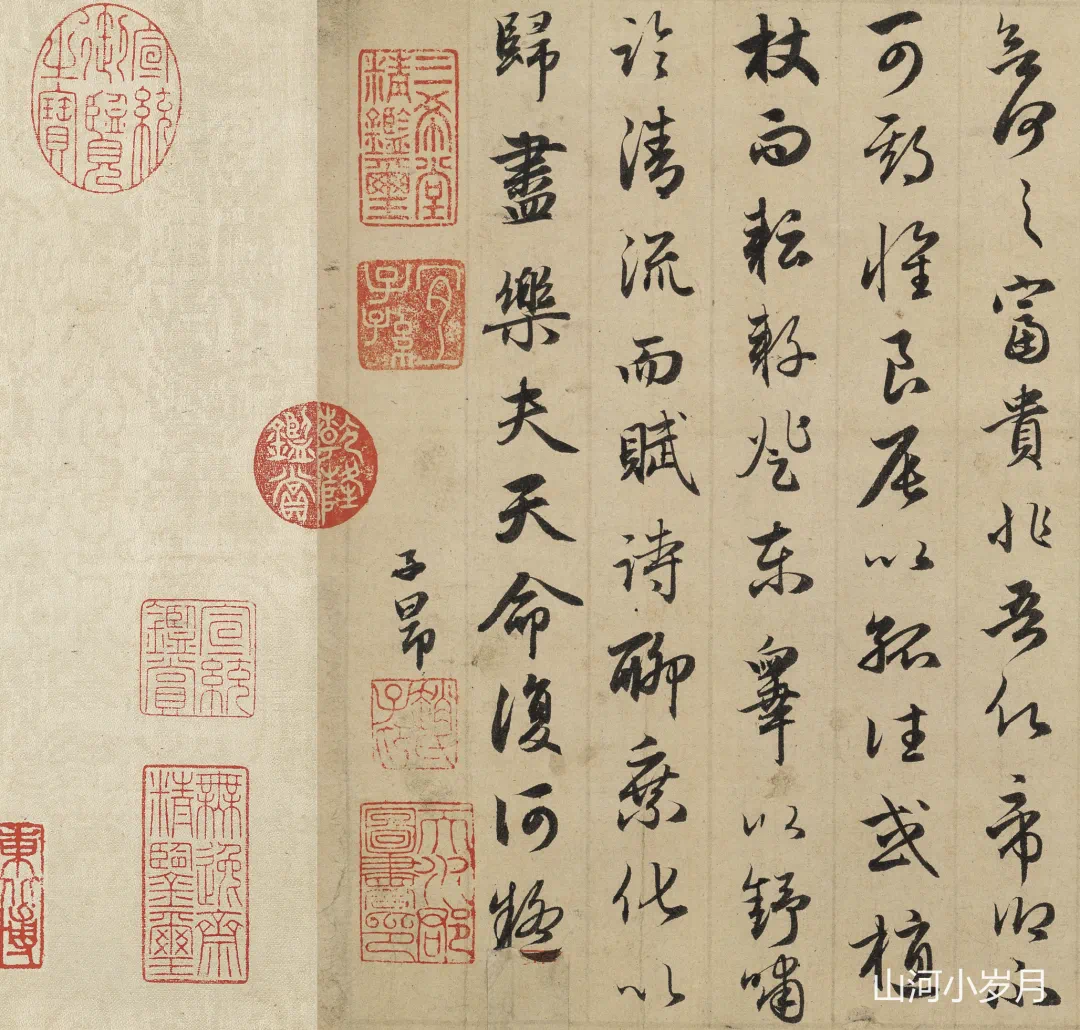 何之富貴非吾願帝鄉不
可期懷良辰以孤往或植
杖而耘耔登東皋以舒嘯
臨清流而賦詩聊乘化以
歸盡樂夫天命復何疑
子昂
三希堂精鑑璽
宜子孫
天水郡圖書印
乾隆鑑賞
宣統御覽之寶
宣統鑑賞
無逸齋精鑒璽
山河小岁月